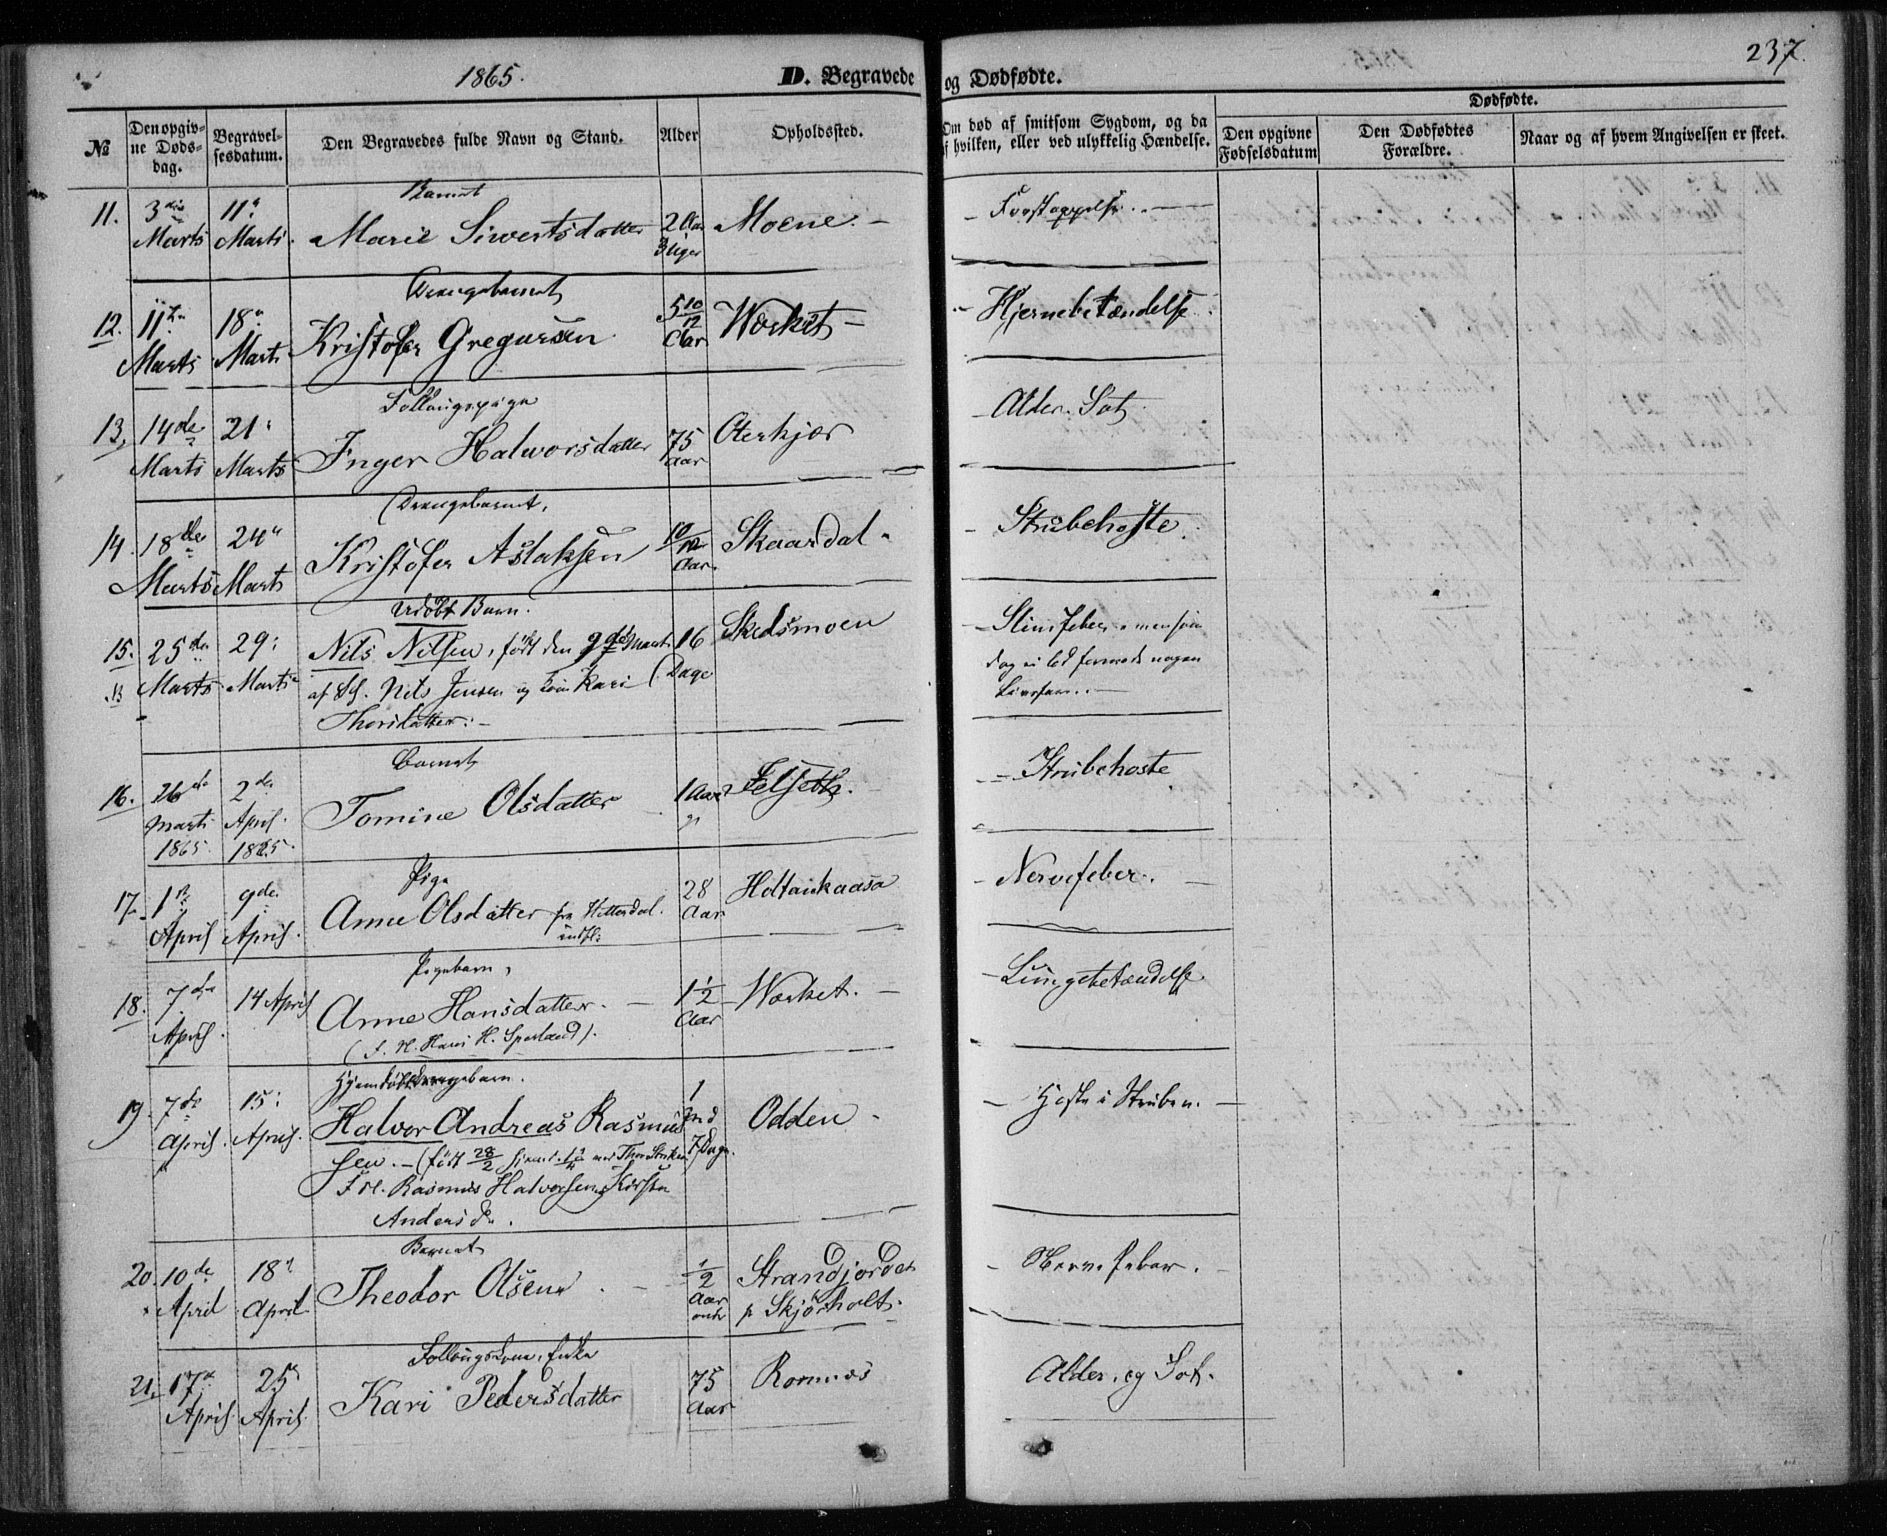 1865.
D. Begravede og Dødfødte.
237.
Dødfødte.
№
Den opgivne Dødsdag.
Begravelsesdatum.
Den Begravedes fulde Navn og Stand.
Alder
Opholdssted.
Om død af smitsom Sygdom, og da
af hvilken, eller ved ulykkelig Hændelse.
Den opgivne Fødselsdatum
Den Dødfødtes Forældre.
Naar og af hvem Angivelsen er skeet.
Barnet
11. 3die Marts 11te Marts. Marie Siwertsdatter 2 Aar 3 Uger Moene. - Forstoppelse. -
Drengebarnet
12. 11te Marts 18de Marts Kristofer Gregersen 5 10/12 Aar Værket - - Hjernebetændelse.
Follaugspige
13. 14de Marts 21: Marts Inger Halvorsdatter 75 Aar Oterkjær - Alder. Sot,
Drengebarnet,
14. 18de Marts 24 Marts Kristofer Aslaksen 10/12 Aar. Skaardal - - Strubehoste.
Udøbt Barn.
15. 25de Marts 29: Marts Nils Nilsen, født den 9de Marts 16 Dage Skedsmoen - Slimfeber
af Nils Jensen og Kone Kari
Thorsdatter: -
Barnet
16. 26de Marts 1865 2de April 1865. Tomine Olsdatter 1 Aar Felseth. - Strubehoste
Pige
17. 1ste April 9de April. Anne Olsdatter fra Hitterdal. 28 Aar Holtankaasa - Nervefeber. -
Pigebarn,
18. 7de April. 14 April Anne Hansdatter. - 1 1/2 Aar Værket. - - Lungebetændelse
(F. H. Hans H. Sperland).
Hjemdøbt Drengebarn.
19. 7de April. 15: April. Halvor Andreas Rasmussen. - 1 Md 7 Dage. Odden - - Hoste i Struben. -
(født 28/2
Rasmus Halvorsen
Anders
Barnet
20. 10de April 18 April. Theodor Olsen - 1/2 Aar Strandjordet
p Skjørholt. - Nervefeber.
Follaugskone, Enke
21. 17de April. 25 April. Kari Pedersdatter 75 Aar Romnæs Alder. og Sot.